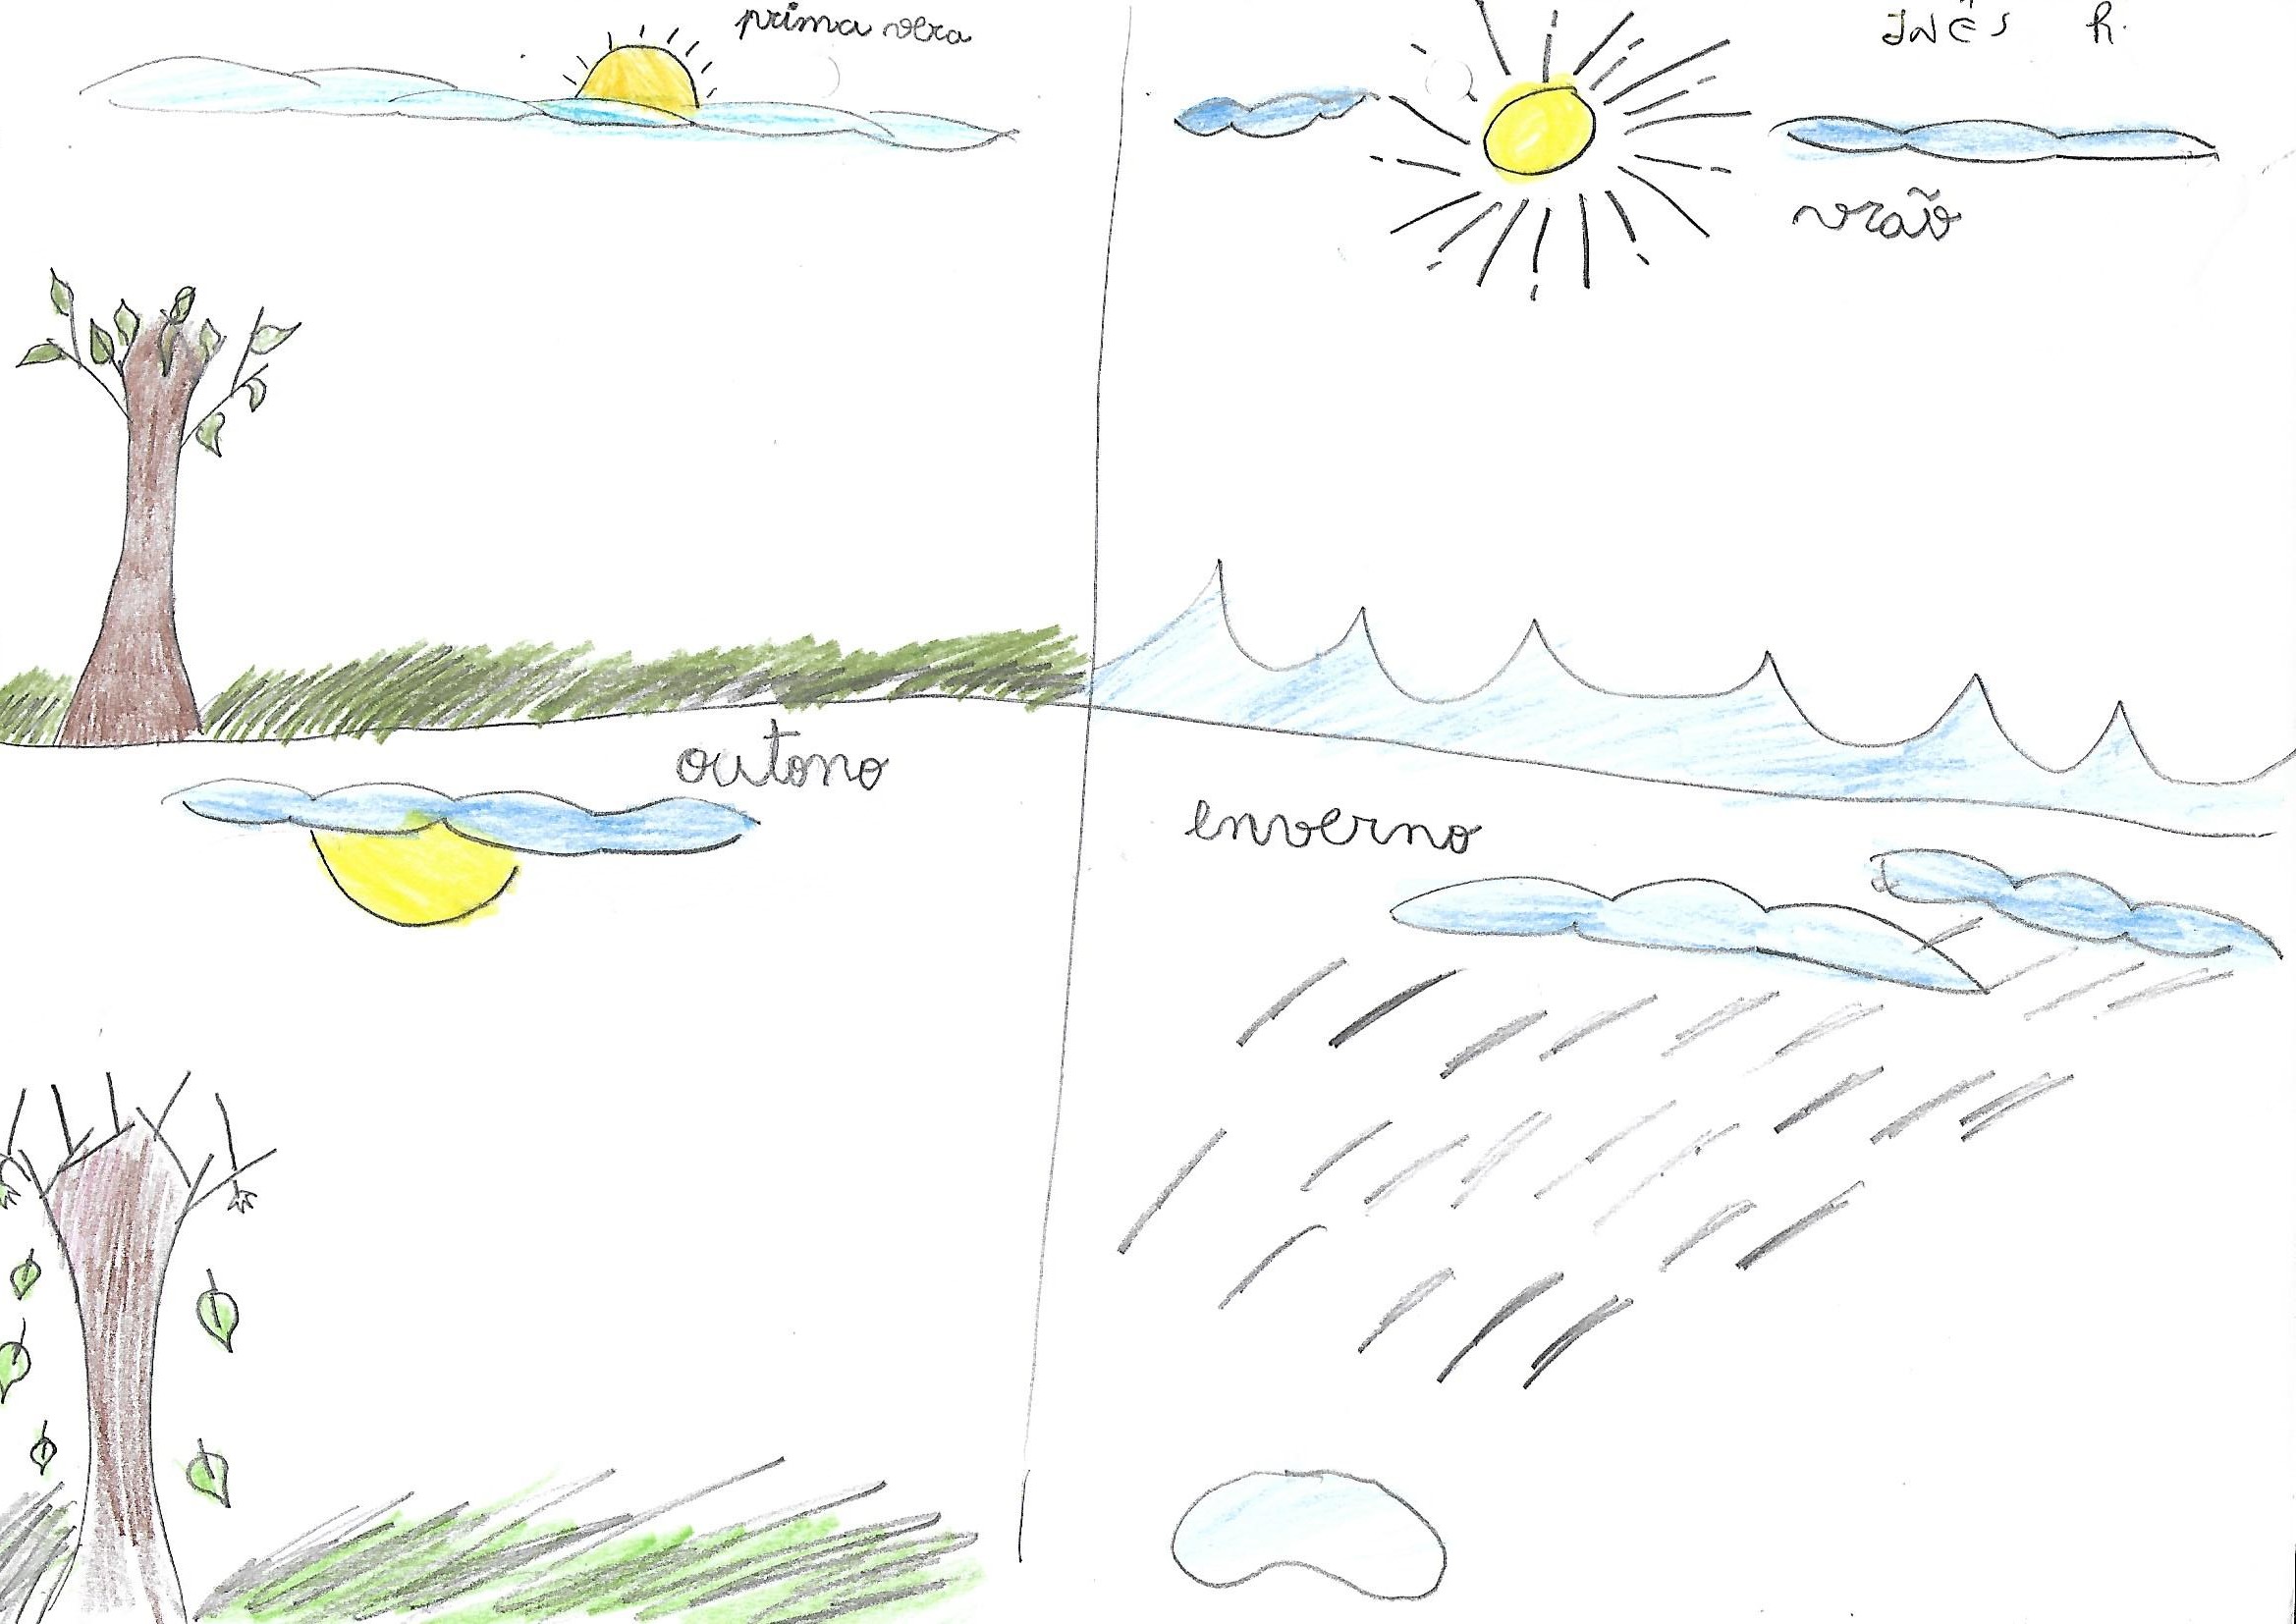 prima vera
INÊS R.
vrão
outono
enverno